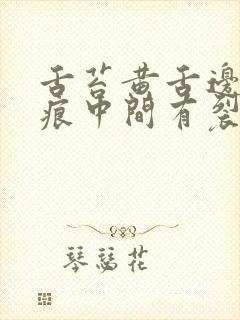 舌苔黄舌邊
痕中間有裂
琴瑟花